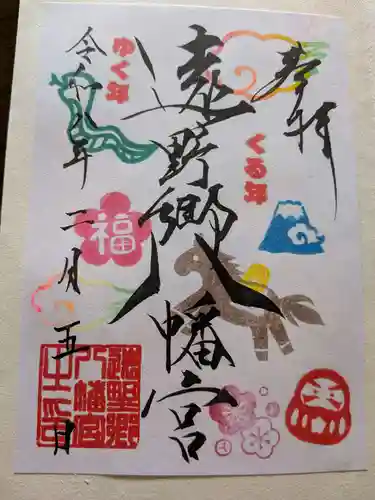 奉拝
くる年
遠野郷八幡宮
ゆく年
令和八年二月五日
福
遠野郷八幡宮之印